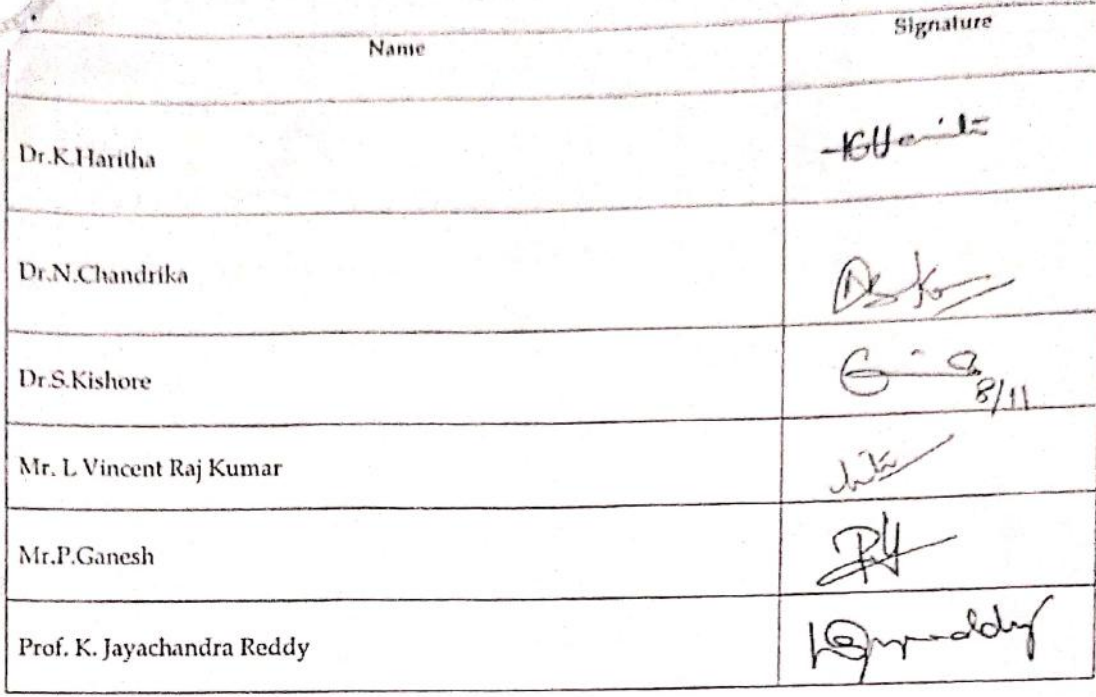 Name Signature
Dr.K.Haritha
Dr.N.Chandrika
Dr.S.Kishore
8/11
Mr. L Vincent Raj Kumar
Mr.P.Ganesh
Prof. K. Jayachandra Reddy